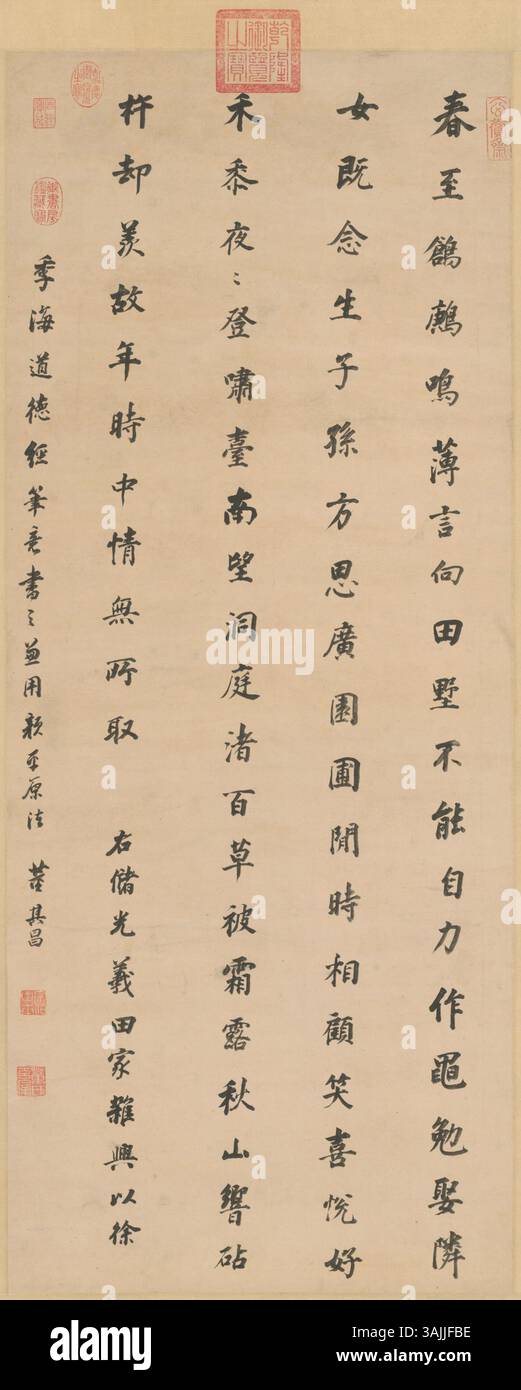 春至鶬鶊鳴薄言向田墅不能自力作黽勉娶隣
女既念生子孫方思廣園圃閒時相顧笑喜悅好
禾黍夜〻登嘯臺南望洞庭渚百草被霜露秋山響砧
杵却羨故年時中情無所取 右儲光羲田家雜興以徐
季海道德經筆意書之兼用顏平原法 董其昌
乾隆御覽之寶
alamy
Image ID: 3AJJFBE
www.alamy.com